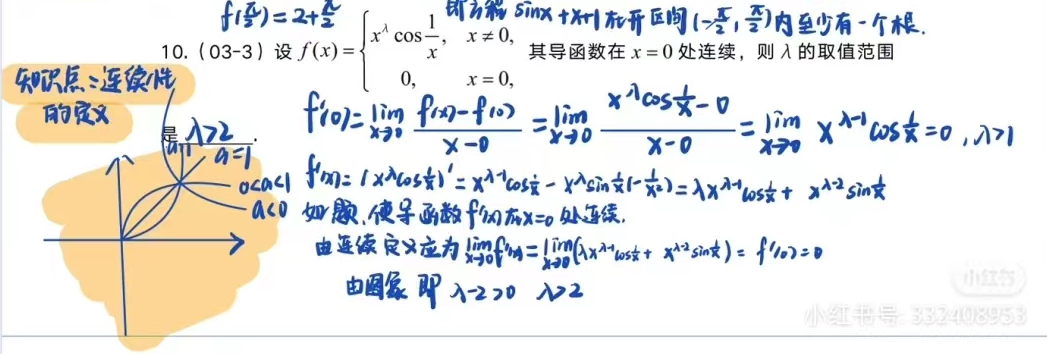 f(π/2)=2+π/2 即方程 sinx+x+1在开区间(-π/2, π/2)内至少有一个根.
10. (03-3) 设 f(x)={ x^λ cos 1/x, x≠0, 0, x=0, 其导函数在 x=0 处连续，则 λ 的取值范围
知识点:连续性
的定义
是 λ>2 .
f'(0)=lim x→0 f(x)-f(0)/x-0 = lim x→0 x^λcos 1/x - 0/x-0 = lim x→0 x^λ-1 cos 1/x = 0, λ>1
a>1
a=1
0<a<1
a<0
f'(x)=(x^λcos 1/x)'= x^λ-1 cos 1/x - x^λ sin 1/x (-1/x²)=λx^λ-1 cos 1/x + x^λ-2 sin 1/x
如题,使导函数f'(x)在x=0处连续.
由连续定义应为 lim x→0 f'(x)= lim x→0 (λx^λ-1 cos 1/x + x^λ-2 sin 1/x)= f'(0)=0
由图象 即 λ-2>0 λ>2
小红书
小红书号: 332408953